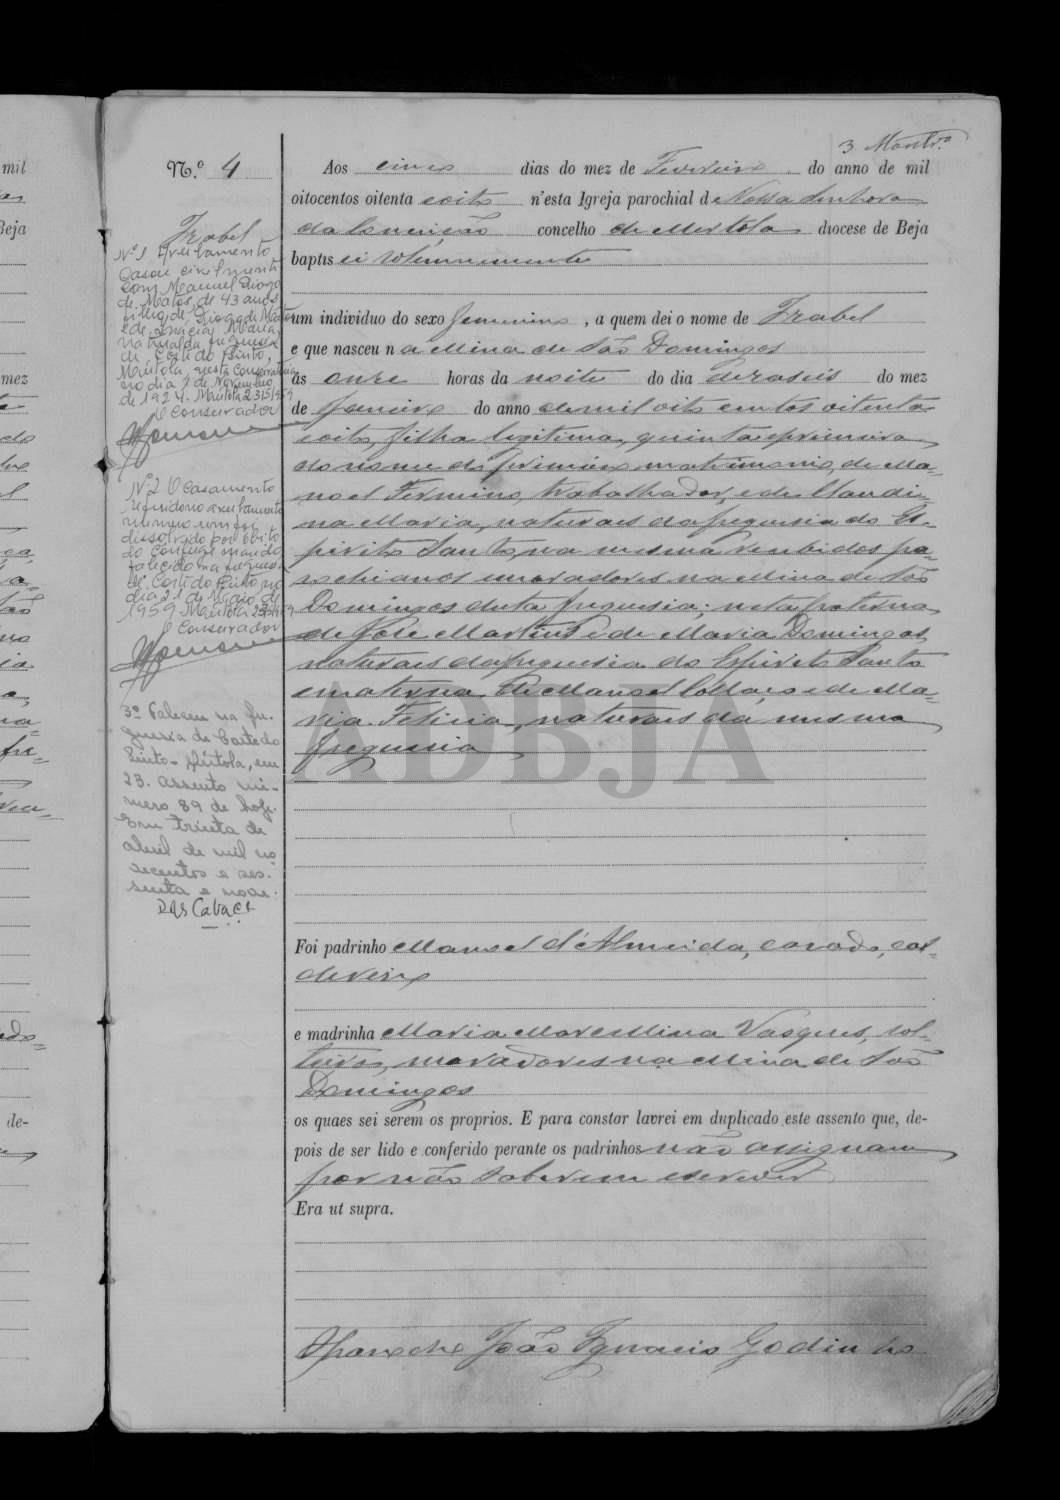 3 Montr.º
N.º 4
Isabel
Nº 1 Averbamento
Casou civilmente
com Manuel Diogo
de Matos, de 43 anos,
filho de Diogo de Matos
e de Inácia Maria,
natural da freguesia
de Corte do Pinto,
Mértola, nesta Conservatória
no dia 2 de Novembro
de 1924. Mértola 23/5/1959
O Conservador
Nº 2 O Casamento
referido no averbamento
número um foi
dissolvido por óbito
do conjuge marido
falecido na freguesia
de Corte do Pinto no
dia 21 de Maio de
1959. Mértola 23/5/1959
O Conservador
3º Faleceu na fre-
guesia de Corte do
Pinto - Mértola, em
23. Assento nú-
mero 89 de hoje.
Em trinta de
abril de mil no-
vecentos e ses-
senta e nove.
Aos cinco dias do mez de Fevereiro do anno de mil
oitocentos oitenta eoito n'esta Igreja parochial de Nossa Senhora
da Conceição concelho de Mertola diocese de Beja
baptisei solemnemente
um individuo do sexo femenino, a quem dei o nome de Isabel
e que nasceu na Mina de São Domingos
ás onze horas da noite do dia dezaseis do mez
de Janeiro do anno de mil oito centos oitenta
eoito, filha legitima, quinta eprimeira
do nome do primeiro matrimonio, de Ma-
noel Fermino, trabalhador, e de Claudi-
na Maria, naturaes da freguesia do Es-
pirito Santo, na mesma recebidos pa-
rochianos emoradores na Mina de São
Domingos desta freguesia; neta paterna
de José Martins e de Maria Domingos,
naturaes dafreguesia do Espirito Santo
ematerna de Manoel Collaço e de Ma-
ria Felicia, naturaes da mesma
freguesia
ADBJA
Foi padrinho Manoel d'Almeida, casado, cal-
deireiro
e madrinha Maria Vasques, sol-
teira, moradores na Mina de São
Domingos
os quaes sei serem os proprios. E para constar lavrei em duplicado este assento que, de-
pois de ser lido e conferido perante os padrinhos não assignam
por não saberem escrever
Era ut supra.
O Parocho João Ignacio Godinho